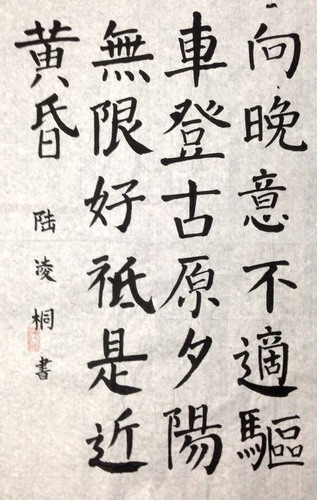 向晚意不適驅
車登古原夕陽
無限好祗是近
黃昏
陸凌桐書